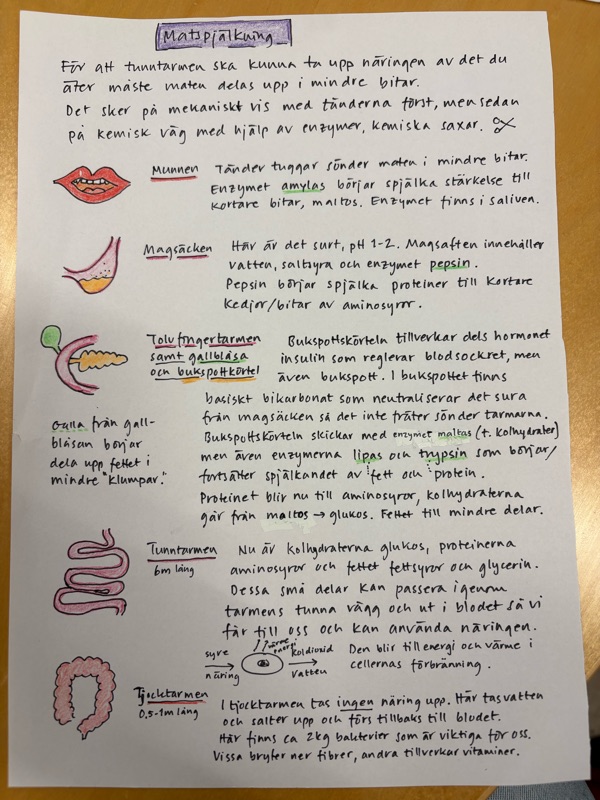 Matspjälkning
För att tunntarmen ska kunna ta upp näringen av det du
äter måste maten delas upp i mindre bitar.
Det sker på mekaniskt vis med tänderna först, men sedan
på kemisk väg med hjälp av enzymer, kemiska saxar.
Munnen
Tänder tuggar sönder maten i mindre bitar.
Enzymet amylas börjar spjälka stärkelse till
kortare bitar, maltos. Enzymet finns i saliven.
Magsäcken
Här är det surt, pH 1-2. Magsaften innehåller
vatten, saltsyra och enzymet pepsin.
Pepsin börjar spjälka proteiner till kortare
kedjor/bitar av aminosyror.
Tolvfingertarmen
samt gallblåsa
och bukspottkörtel
Bukspottskörteln tillverkar dels hormonet
insulin som reglerar blodsockret, men
även bukspott. I bukspottet finns
basiskt bikarbonat som neutraliserar det sura
från magsäcken så det inte fräter sönder tarmarna.
Bukspottskörteln skickar med enzymet maltas (t. kolhydrater)
men även enzymerna lipas och trypsin som börjar/
fortsätter spjälkandet av fett och protein.
Proteinet blir nu till aminosyror, kolhydraterna
går från maltos → glukos. Fettet till mindre delar.
Galla från gall-
blåsan börjar
dela upp fettet i
mindre "klumpar."
Tunntarmen
6m lång
Nu är kolhydraterna glukos, proteinerna
aminosyror och fettet fettsyror och glycerin.
Dessa små delar kan passera igenom
tarmens tunna vägg och ut i blodet så vi
får till oss och kan använda näringen.
syre
näring
värme
energi
koldioxid
vatten
Den blir till energi och värme i
cellernas förbränning.
Tjocktarmen
0,5-1m lång
I tjocktarmen tas ingen näring upp. Här tas vatten
och salter upp och förs tillbaks till blodet.
Här finns ca 2kg bakterier som är viktiga för oss.
Vissa bryter ner fibrer, andra tillverkar vitaminer.